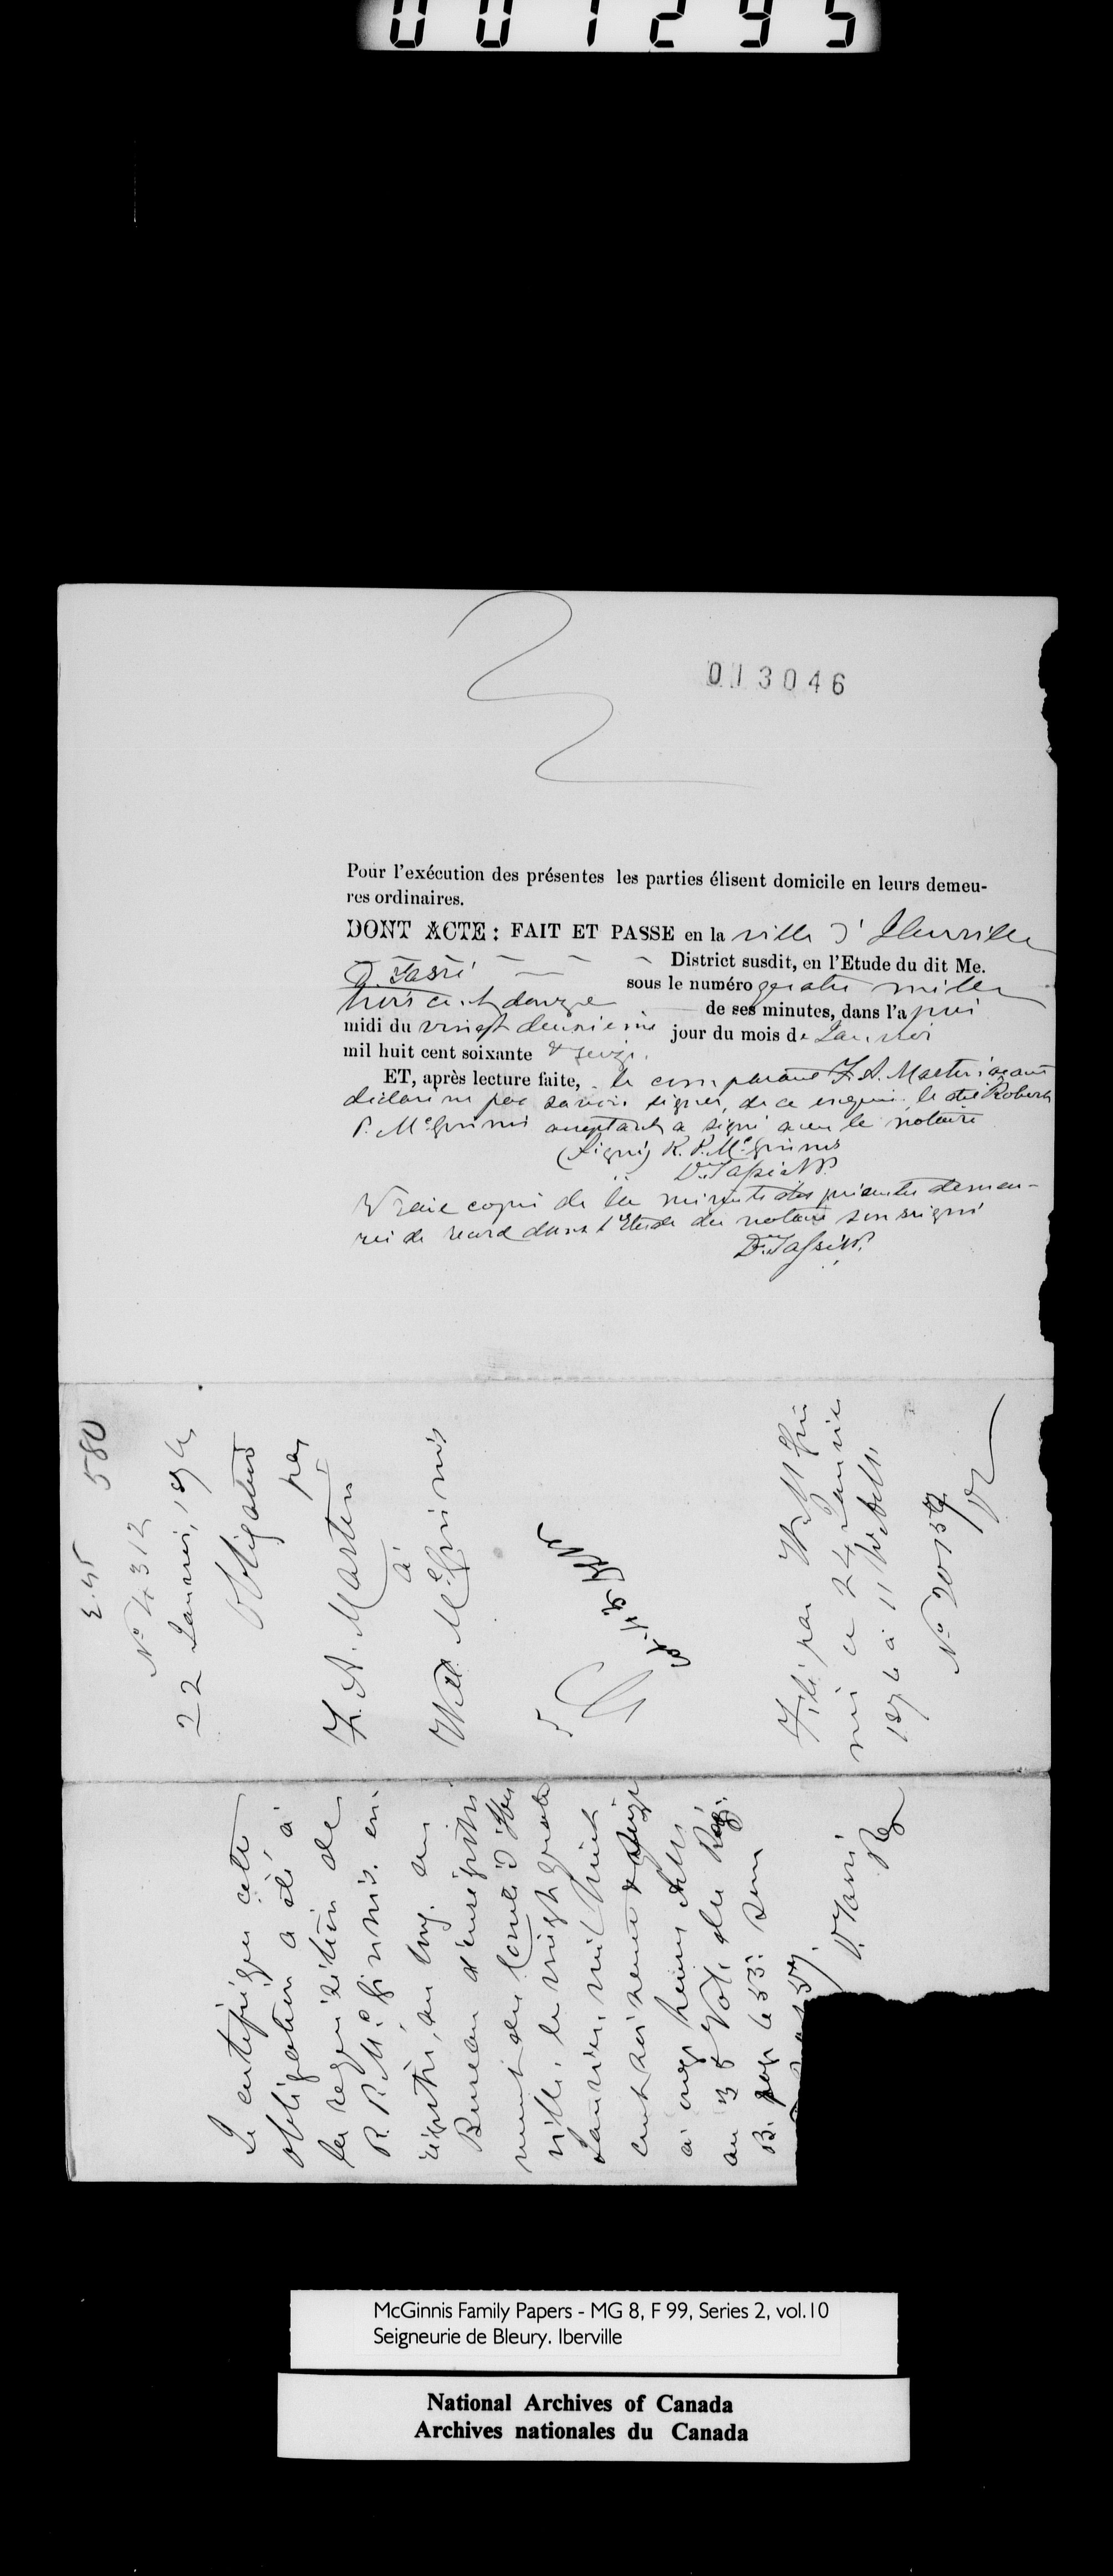 001295
013046
Pour l'exécution des présentes les parties élisent domicile en leurs demeu-
res ordinaires.
DONT ACTE : FAIT ET PASSE en la ville d'Iberville
District susdit, en l'Etude du dit Me.
D. Tassé sous le numéro quatre mille
trois cent douze de ses minutes, dans l'après
midi du vingt deuxième jour du mois de Janvier
mil huit cent soixante & seize.
ET, après lecture faite, le comparant F. A. Martin ayant
déclaré ne pas savoir signer, de ce enquis, le dit Robert
P. McGinnis acceptant a signé avec le notaire
(Signé) R. P. McGinnis
" D. Tassé N.P.
Vraie copie de la minute des présentes demeu-
rée de record dans l'Etude du notaire soussigné
D. Tassé N.P.
580
No 4312
22 Janvier, 1876
Obligation
par
F. A. Martin
à
Will McGinnis
Filé par W. McGin
nis ce 24 Janvier
1876 à 11
No 20157
Je certifie que cette
obligation a été, à
la requisition de
R. P. McGinnis, en-
régistrée, au long, au
Bureau d'enrégistre
ment du Comté d'Iber
ville, le vingt quatre
Janvier, mil huit
cent soixante & seize
à onze heures
au 35 Vol. du Reg.
B. page 653. sous
57.
D. Tassé
Reg
McGinnis Family Papers - MG 8, F 99, Series 2, vol.10
Seigneurie de Bleury. Iberville
National Archives of Canada
Archives nationales du Canada